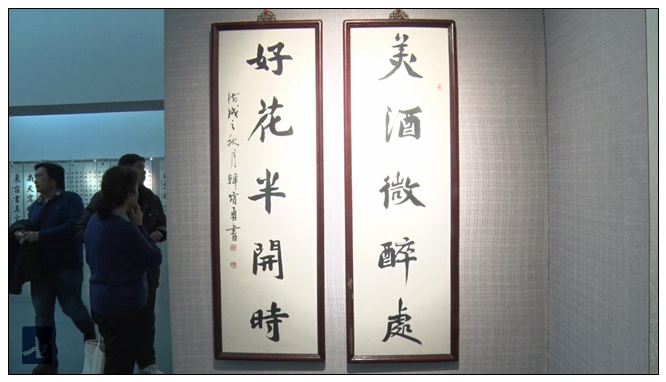 美酒微醉處
好花半開時
戊戌之秋月韓寶勇書